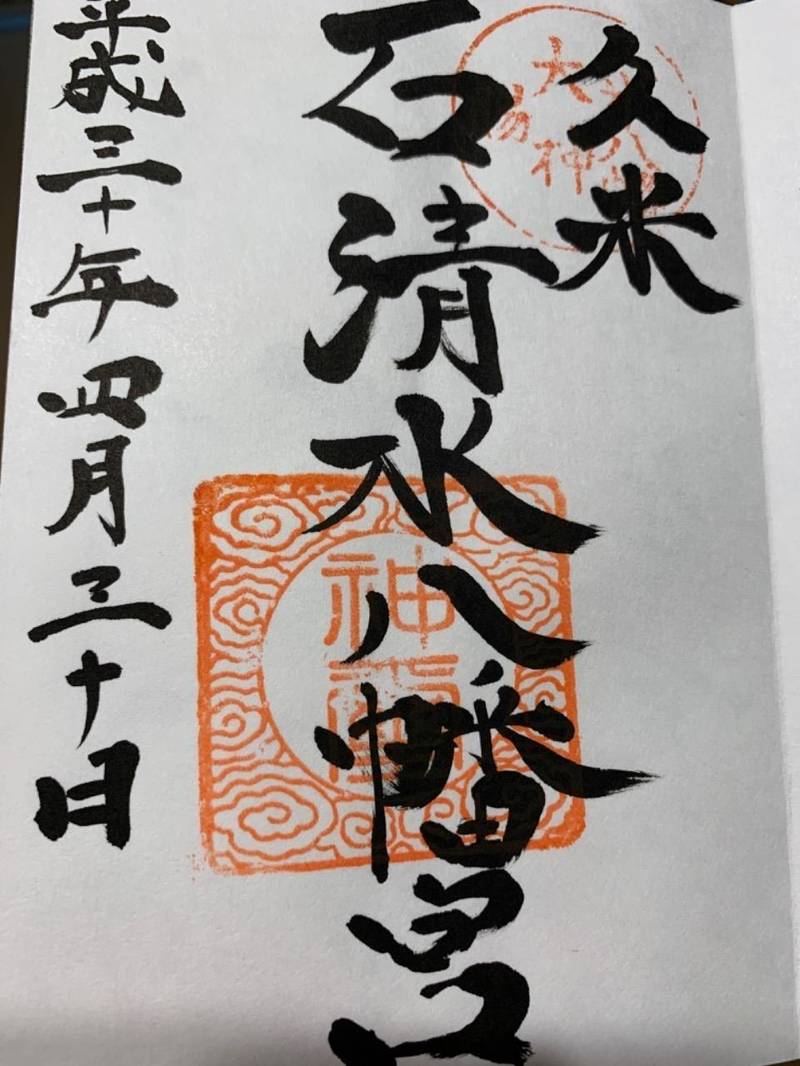 久米
石清水八幡宮
平成三十年四月三十日
大
神
神